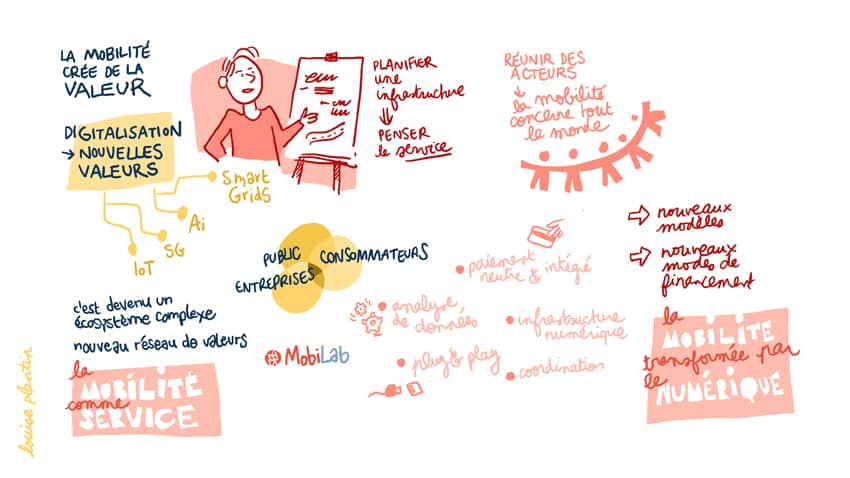 LA MOBILITÉ
CRÉE DE LA
VALEUR
DIGITALISATION
→ NOUVELLES
VALEURS
Smart
Grids
Ai
SG
IoT
PLANIFIER
une
infrastructure
PENSER
le service
RÉUNIR DES
ACTEURS
la mobilité
concerne tout
le monde
PUBLIC
CONSOMMATEURS
ENTREPRISES
c'est devenu un
écosystème complexe
nouveau réseau de valeurs
la
MOBILITÉ
comme
SERVICE
MobiLab
• paiement
neutre & intégré
• analyse
de données
• infrastructure
numérique
• plug & play
• coordination
⇨ nouveaux
modèles
⇨ nouveaux
modes de
financement
la
MOBILITÉ
transformée par
le
NUMÉRIQUE
louise plantin